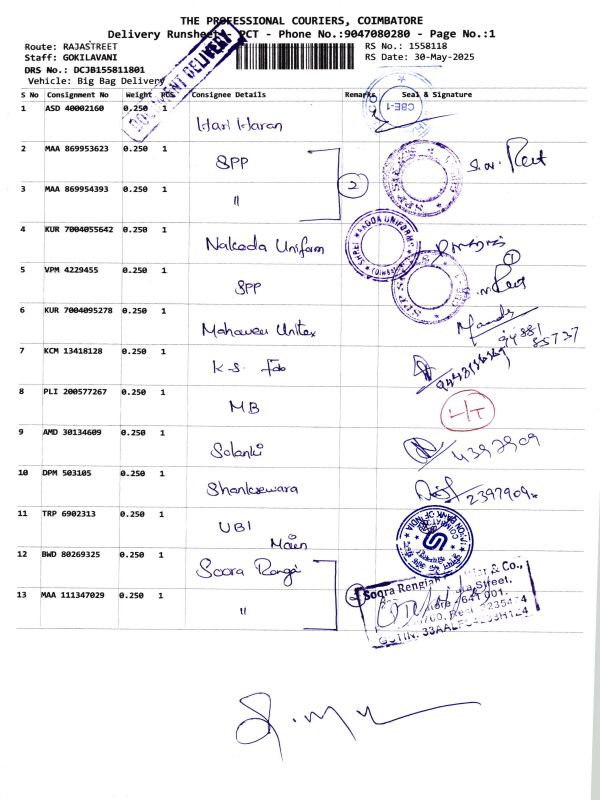 THE PROFESSIONAL COURIERS, COIMBATORE
Delivery Runsheet - PCT - Phone No.:9047080280 - Page No.:1
Route: RAJASTREET RS No.: 1558118
Staff: GOKILAVANI RS Date: 30-May-2025
DRS No.: DCJB155811801
Vehicle: Big Bag Delivery
DOCUMENT DELIVERY
S No Consignment No Weight PCS Consignee Details Remarks Seal & Signature
1 ASD 40002160 0.250 1 Hari Haran CBE-1
2 MAA 869953623 0.250 1 SPP
3 MAA 869954393 0.250 1 " 2
4 KUR 7004055642 0.250 1 Nakoda Uniform
5 VPM 4229455 0.250 1 SPP 1
6 KUR 7004095278 0.250 1 Mahaveer Unitex
94881
85737
7 KCM 13418128 0.250 1 K.S. Fab
8 PLI 200577267 0.250 1 MB
9 AMD 30134609 0.250 1 Solanki 4397909
10 DPM 503105 0.250 1 Shankeswara 2397909
11 TRP 6902313 0.250 1 UBI Main
UNION BANK OF INDIA
12 BWD 80269325 0.250 1 Soora Rengi
13 MAA 111347029 0.250 1 " 2
Soora Rengiah & Co.,
Street,
641 001.